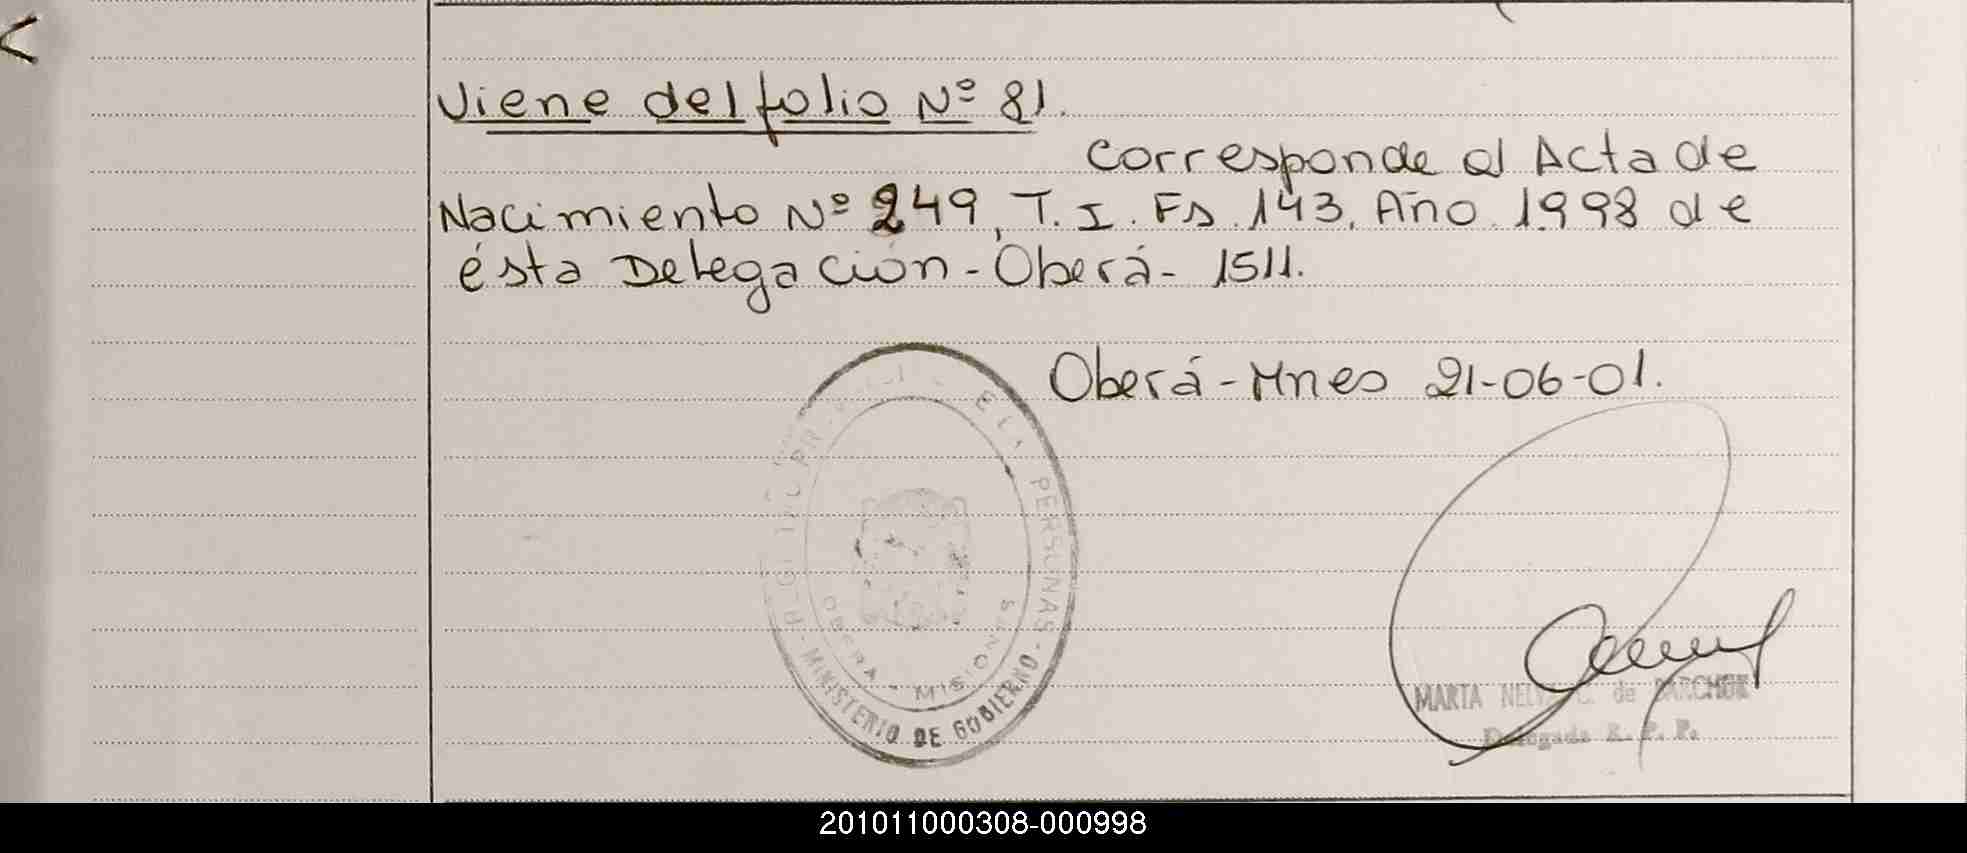 Viene del folio Nº 81.
Corresponde al Acta de
Nacimiento Nº 249, T. I. Fs. 143. Año 1998 de
ésta Delegación - Oberá - 1511.
Oberá - Mnes 21-06-01.
PERSONAS - MINISTERIO DE GOBIERNO
OBERA - MISIONES
MARTA de
Delegada R. P. P.
201011000308-000998